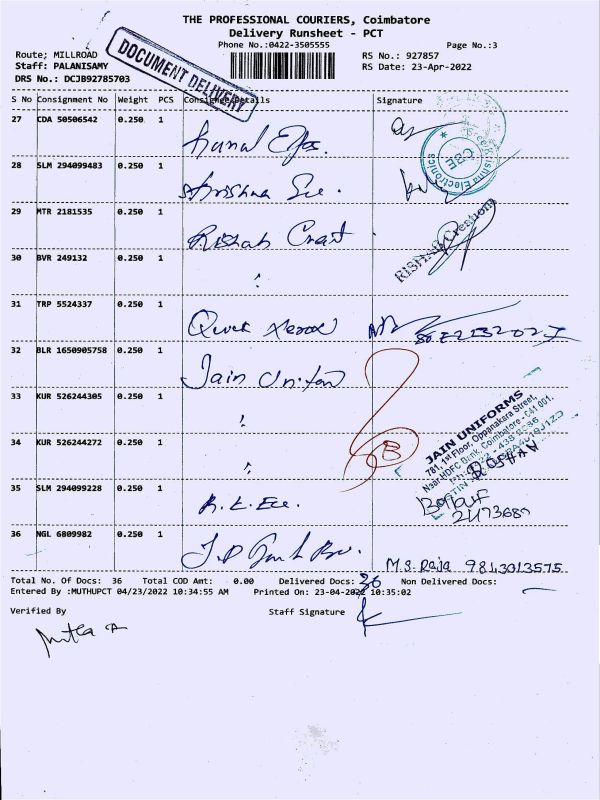 THE PROFESSIONAL COURIERS, Coimbatore
Delivery Runsheet - PCT
Phone No.:0422-3505555
Page No.:3
Route; MILLROAD
Staff: PALANISAMY
DRS No.: DCJB92785703
RS No.: 927857
RS Date: 23-Apr-2022
DOCUMENT DELIVERY
S No Consignment No Weight PCS Consignee Details Signature
27 CDA 50506542 0.250 1
28 SLM 294099483 0.250 1 Krishna Ele.
Sree Krishna Electronics
CBE
29 MTR 2181535 0.250 1 Rishab Creat
RISHAB Creations
30 BVR 249132 0.250 1
31 TRP 5524337 0.250 1 Quick Xerox
32 BLR 1650905758 0.250 1 Jain Uniform
33 KUR 526244305 0.250 1
34 KUR 526244272 0.250 1
B
JAIN UNIFORMS
781, 1st Floor, Oppanakara Street,
Near HDFC Bank, Coimbatore - 641 001.
ROSHAN
35 SLM 294099228 0.250 1 R.K. Ele.
36 NGL 6809982 0.250 1
M.S. Raja 9843013575
Total No. Of Docs: 36 Total COD Amt: 0.00 Delivered Docs: 36 Non Delivered Docs:
Entered By :MUTHUPCT 04/23/2022 10:34:55 AM Printed On: 23-04-2022 10:35:02
Verified By
Staff Signature